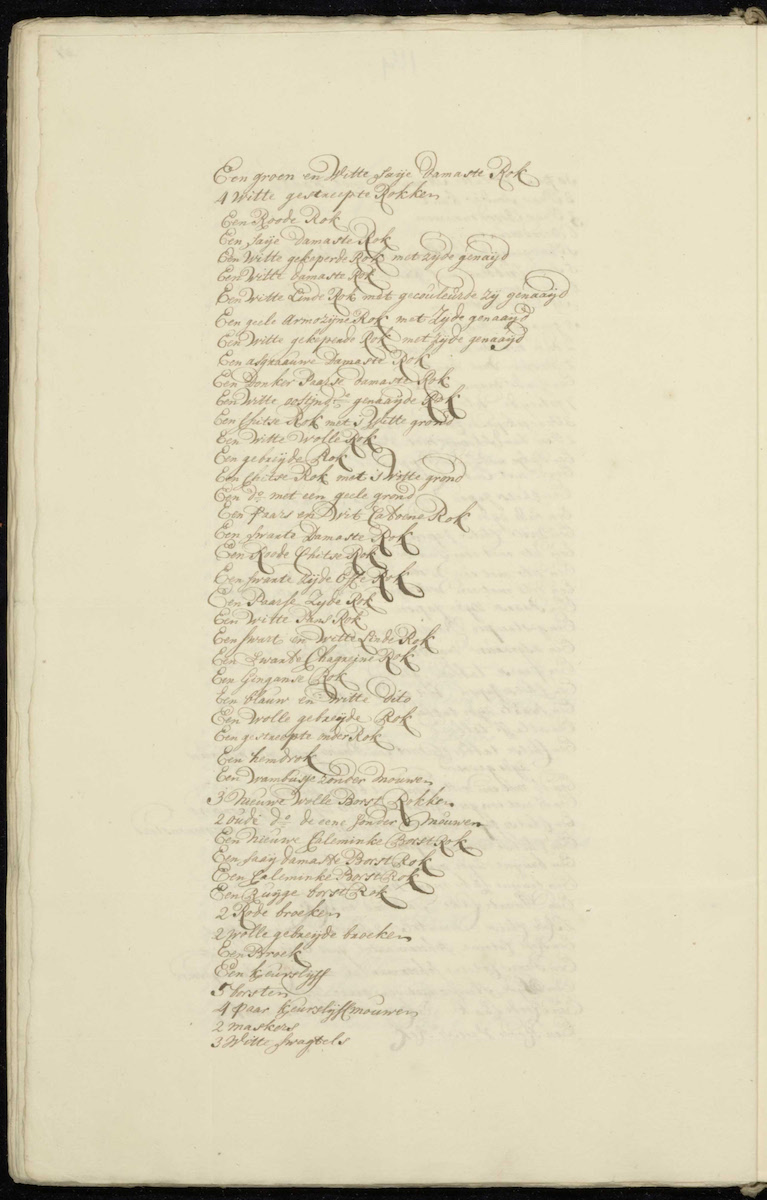 Een groen en Witte Saije Damaste Rok
4 Witte gestreepte Rokken
Een Roode Rok
Een Saije damaste Rok
Een Witte gekeperde Rok met zyde genaaijd
Een Witte damaste Rok
Een Witte Linde Rok met gecouleurde zij genaaijd
Een geele Armozijne Rok met Zyde genaaijd
Een Witte gekeperde Rok met zyde genaaijd
Een asgraauwe Damaste Rok
Een Donker Paarse damaste Rok
Een Witte oostind:e genaaijde Rok
Een Chitse Rok met 1 Witte grond
Een Witte Wolle Rok
Een gebreijde Rok
Een Chitse Rok met 1 Witte grond
Een do met een geele grond
Een Paars en Wit Catoene Rok
Een swarte Damaste Rok
Een Roode Chitse Rok
Een swarte zijde Rok
Een Paarse Zyde Rok
Een Witte Rok
Een swart en Witte Linde Rok
Een Zwarte Chagrijne Rok
Een Ginganse Rok
Een blauw en Witte dito
Een Wolle gebreijde Rok
Een gestreepte onder Rok
Een hemdrok
Een Wambuijs zonder mouwen
3 Nieuwe Wolle Borst Rokken
2 oude do de eene sonder mouwen
Een Nieuwe Caleminke Borst Rok
Een Saaij damaste Borst Rok
Een Caleminke Borst Rok
Een Ruijge borst Rok
2 Rode broeken
2 Wolle gebreijde broeken
Een Broek
Een keurslyff
5 borsten
4 paar keurslyff mouwen
2 maskers
3 Witte swagtels